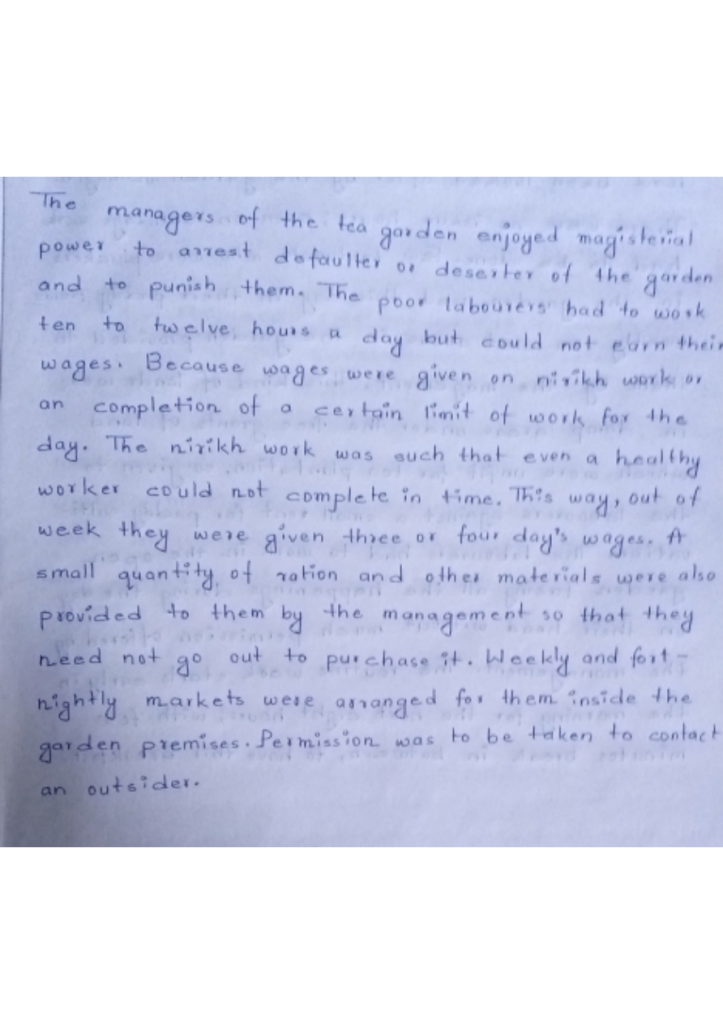 The managers of the tea garden enjoyed magisterial
power to arrest defaulter or deserter of the garden
and to punish them. The poor labourers had to work
ten to twelve hours a day but could not earn their
wages. Because wages were given on nirikh work or
an completion of a certain limit of work for the
day. The nirikh work was such that even a healthy
worker could not complete in time. This way, out of
week they were given three or four day's wages. A
small quantity of ration and other materials were also
provided to them by the management so that they
need not go out to purchase it. Weekly and fort-
nightly markets were arranged for them inside the
garden premises. Permission was to be taken to contact
an outsider.